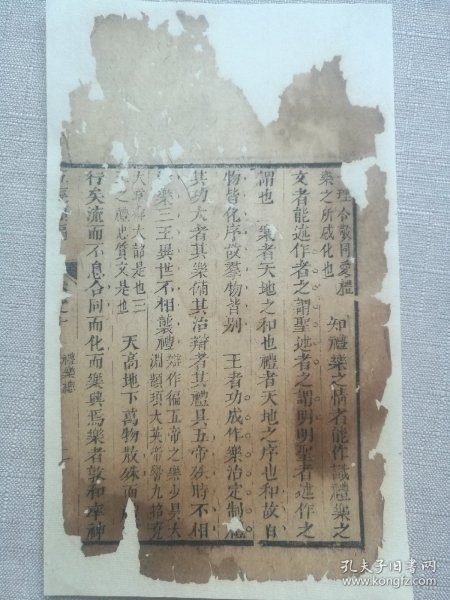 理合敬同愛禮
樂之所感化也
知禮樂之情者能作識禮樂之
文者能述作者之謂聖述者之謂明明聖者述作之
謂也 樂者天地之和也禮者天地之序也和故百
物皆化序故羣物皆别 王者功成作樂治定制禮
其功大者其樂備其治辯者其禮具五帝殊時不相
樂三王異世不相襲禮
辯作徧五帝之樂少昊大
淵顓頊大英帝嚳九招堯
大章舜大韶是也三
之禮忠質文是也
天高地下萬物散殊而
行矣流而不息合同而化而樂興焉樂者敦和率神
禮樂總
孔夫子旧书网
www.kongfz.com